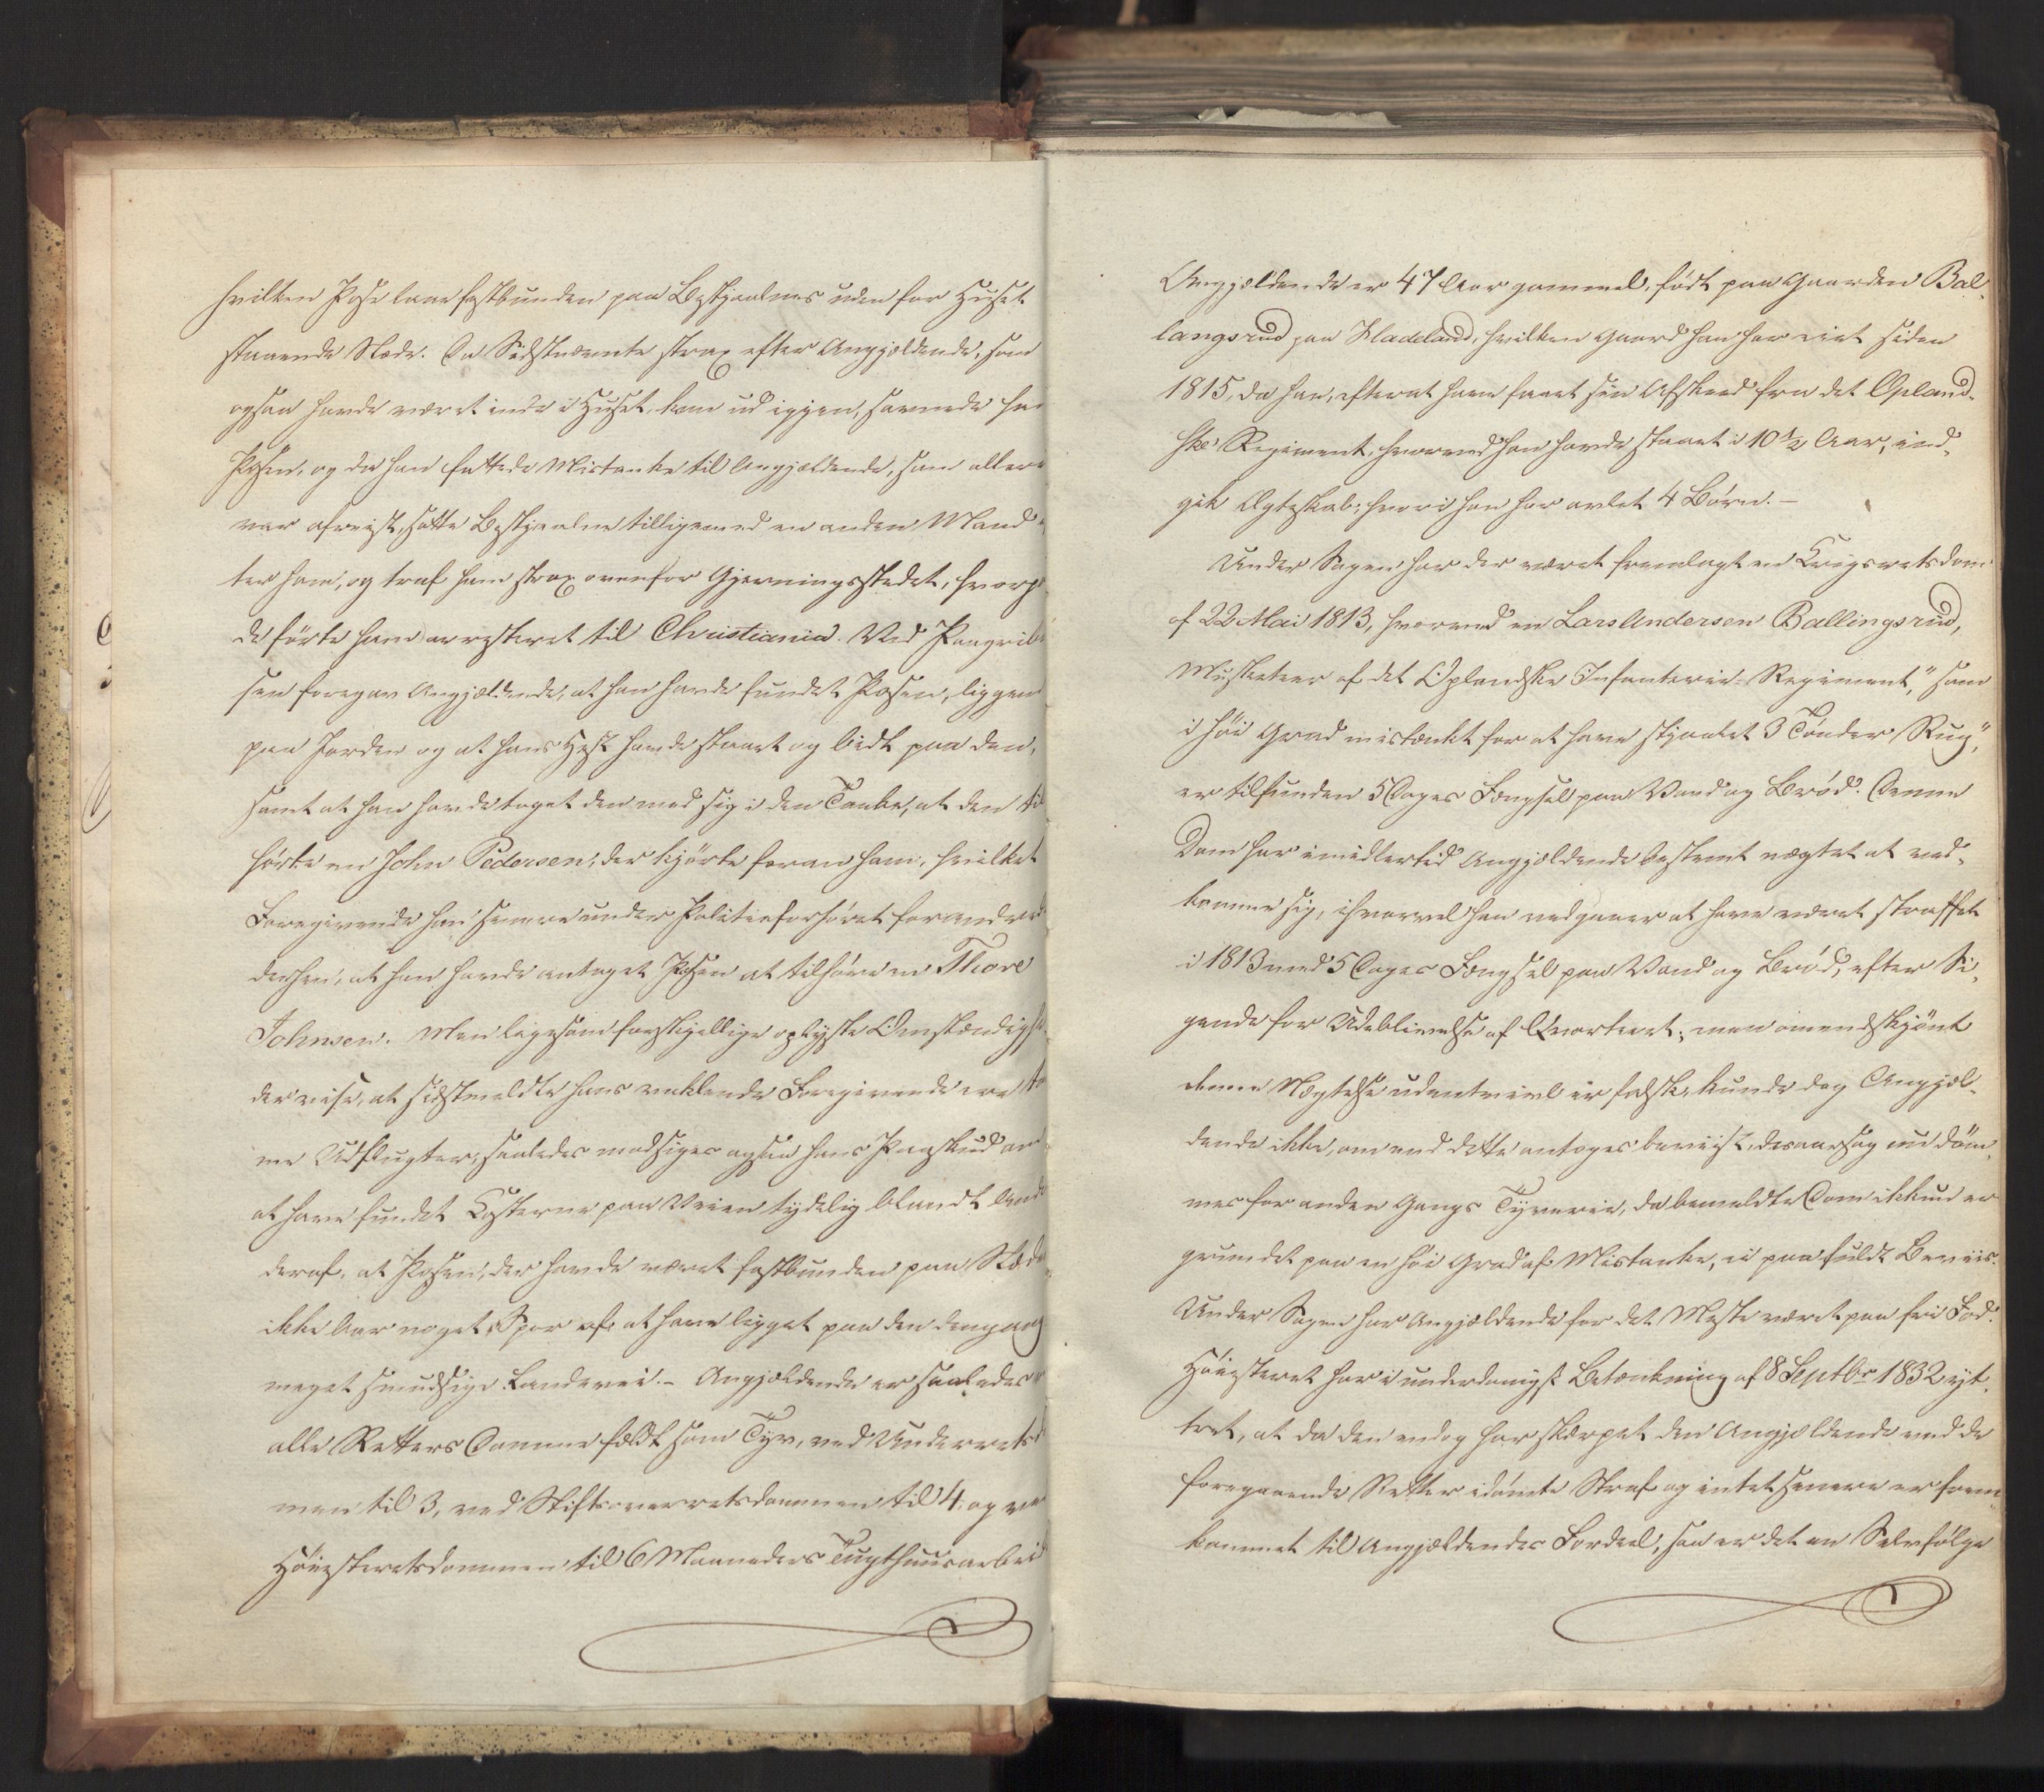 hvilken Pose laae fastbunden paa Bestjaalnes uden for Huset
staaende Slæde. Da Sidstnævnte strax efter Angjældende, som
ogsaa havde været inde i Huset, kom ud igjen, savnede han
Posen, og da han fattede Mistanke til Angjældende, som allere
var afreist, satte Bestjaalne tilligemed en anden Mand
ter ham, og traf ham strax ovenfor Gjerningsstedet, hvorp
de førte ham arresteret til Christiania. Ved Paagribe
sen foregav Angjældende, at han havde fundet Posen, liggen
paa Jorden og at hans Hest havde staaet og bidt paa den,
samt at han havde taget den med sig i den Tanke, at den til
hørte en John Pedersen, der kjørte foran ham, hvilket
Foregivende han senere under Politieforhøret forandred
derhen, at han havde antaget Posen at tilhøre en Thore
Johnsen. Men ligesom forskjellige oplyste Omstændighe
der vise, at sidstmeldte hans vaklende Foregivende ere to
me Udflugter, saaledes modsiges ogsaa hans Paaskud om
at have fundet Kosterne paa Veien tydelig blandt Andet
deraf, at Posen, der havde været fastbunden paa Slæde
ikke bar noget Spor af at have ligget paa den dengang
meget smudsige Landevei. - Angjældende er saaledes v
alle Retters Domme fældt som Tyv, ved Underrets
men til 3, ved Stiftsoverretsdommen til 4, og ve
Høiesteretsdommen til 6 Maaneders Tugthuusarbeid
Angjældende er 47 Aar gammel, født paa Gaarden Bal-
langsrud paa Hadeland, hvilken Gaard han har eiet siden
1815, da han, efterat have faaet sin Afskeed fra det Opland-
ske Regiment, hvorved han havde staaet i 10 1/2 Aar, ind-
gik Ægteskab, hvori han har avlet 4 Børn. -
Under Sagen har der været fremlagt en Krigsretsdom
af 22 Mai 1813, hvorved en Lars Andersen Ballingsrud,
Musketeer af det Oplandske Infanterie-Regiment, "som
i høi Grad mistænkt for at have stjaalet 3 Tønder Rug",
er tilfunden 5 Dages Fængsel paa Vand og Brød. Denne
Dom har imidlertid Angjældende bestemt nægtet at ved-
komme sig, ihvorvel han vedgaaer at have været straffet
i 1813 med 5 Dages Fængsel paa Vand og Brød, efter Si-
gende for Udeblivelse af Qvarteret; men omendskjønt
denne Nægtelse udentvivl er falsk, kunde dog Angjæl-
dende ikke, om end dette antoges beviist, desaarsag nu døm-
mes for anden Gangs Tyverie, da bemeldte Dom ikkun er
grundet paa en høi Grad af Mistanke, ei paa fuldt Beviis.
Under Sagen har Angjældende for det Meste været paa fri Fod.
Høiesteret har i underdanigst Betænkning af 8 Septbr 1832 yt-
tret, at da den endog har skærpet den Angjældende ved de
foregaaende Retter idømte Straf og intet senere er frem-
kommet til Angjældendes Fordeel, saa er det en Selvfølge